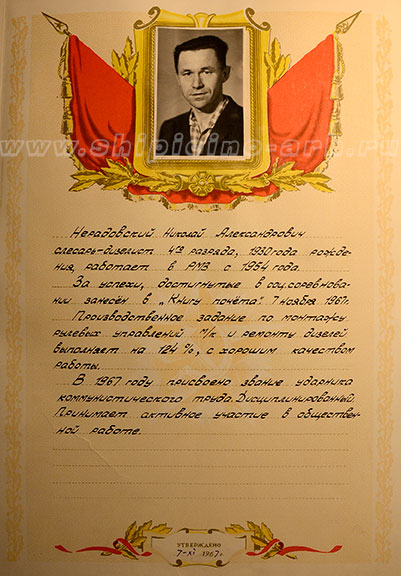 www.shipiqino-arc.ru
Нерадовский Николай Александрович
слесарь-дизелист 4го разряда, 1930 года рожде-
ния, работает в РМЗ с 1954 года.
За успехи, достигнутые в соц.соревнова-
нии занесён в „Книгу почёта". 7 ноября 1967г.
Производственное задание по монтажу
рулевых управлений м/к и ремонту дизелей
выполняет на 124 %, с хорошим качеством
работы.
В 1967 году присвоено звание ударника
коммунистического труда. Дисциплинированный.
Принимает активное участие в обществен-
ной работе.
УТВЕРЖДЕНО
7-XI 1967г.